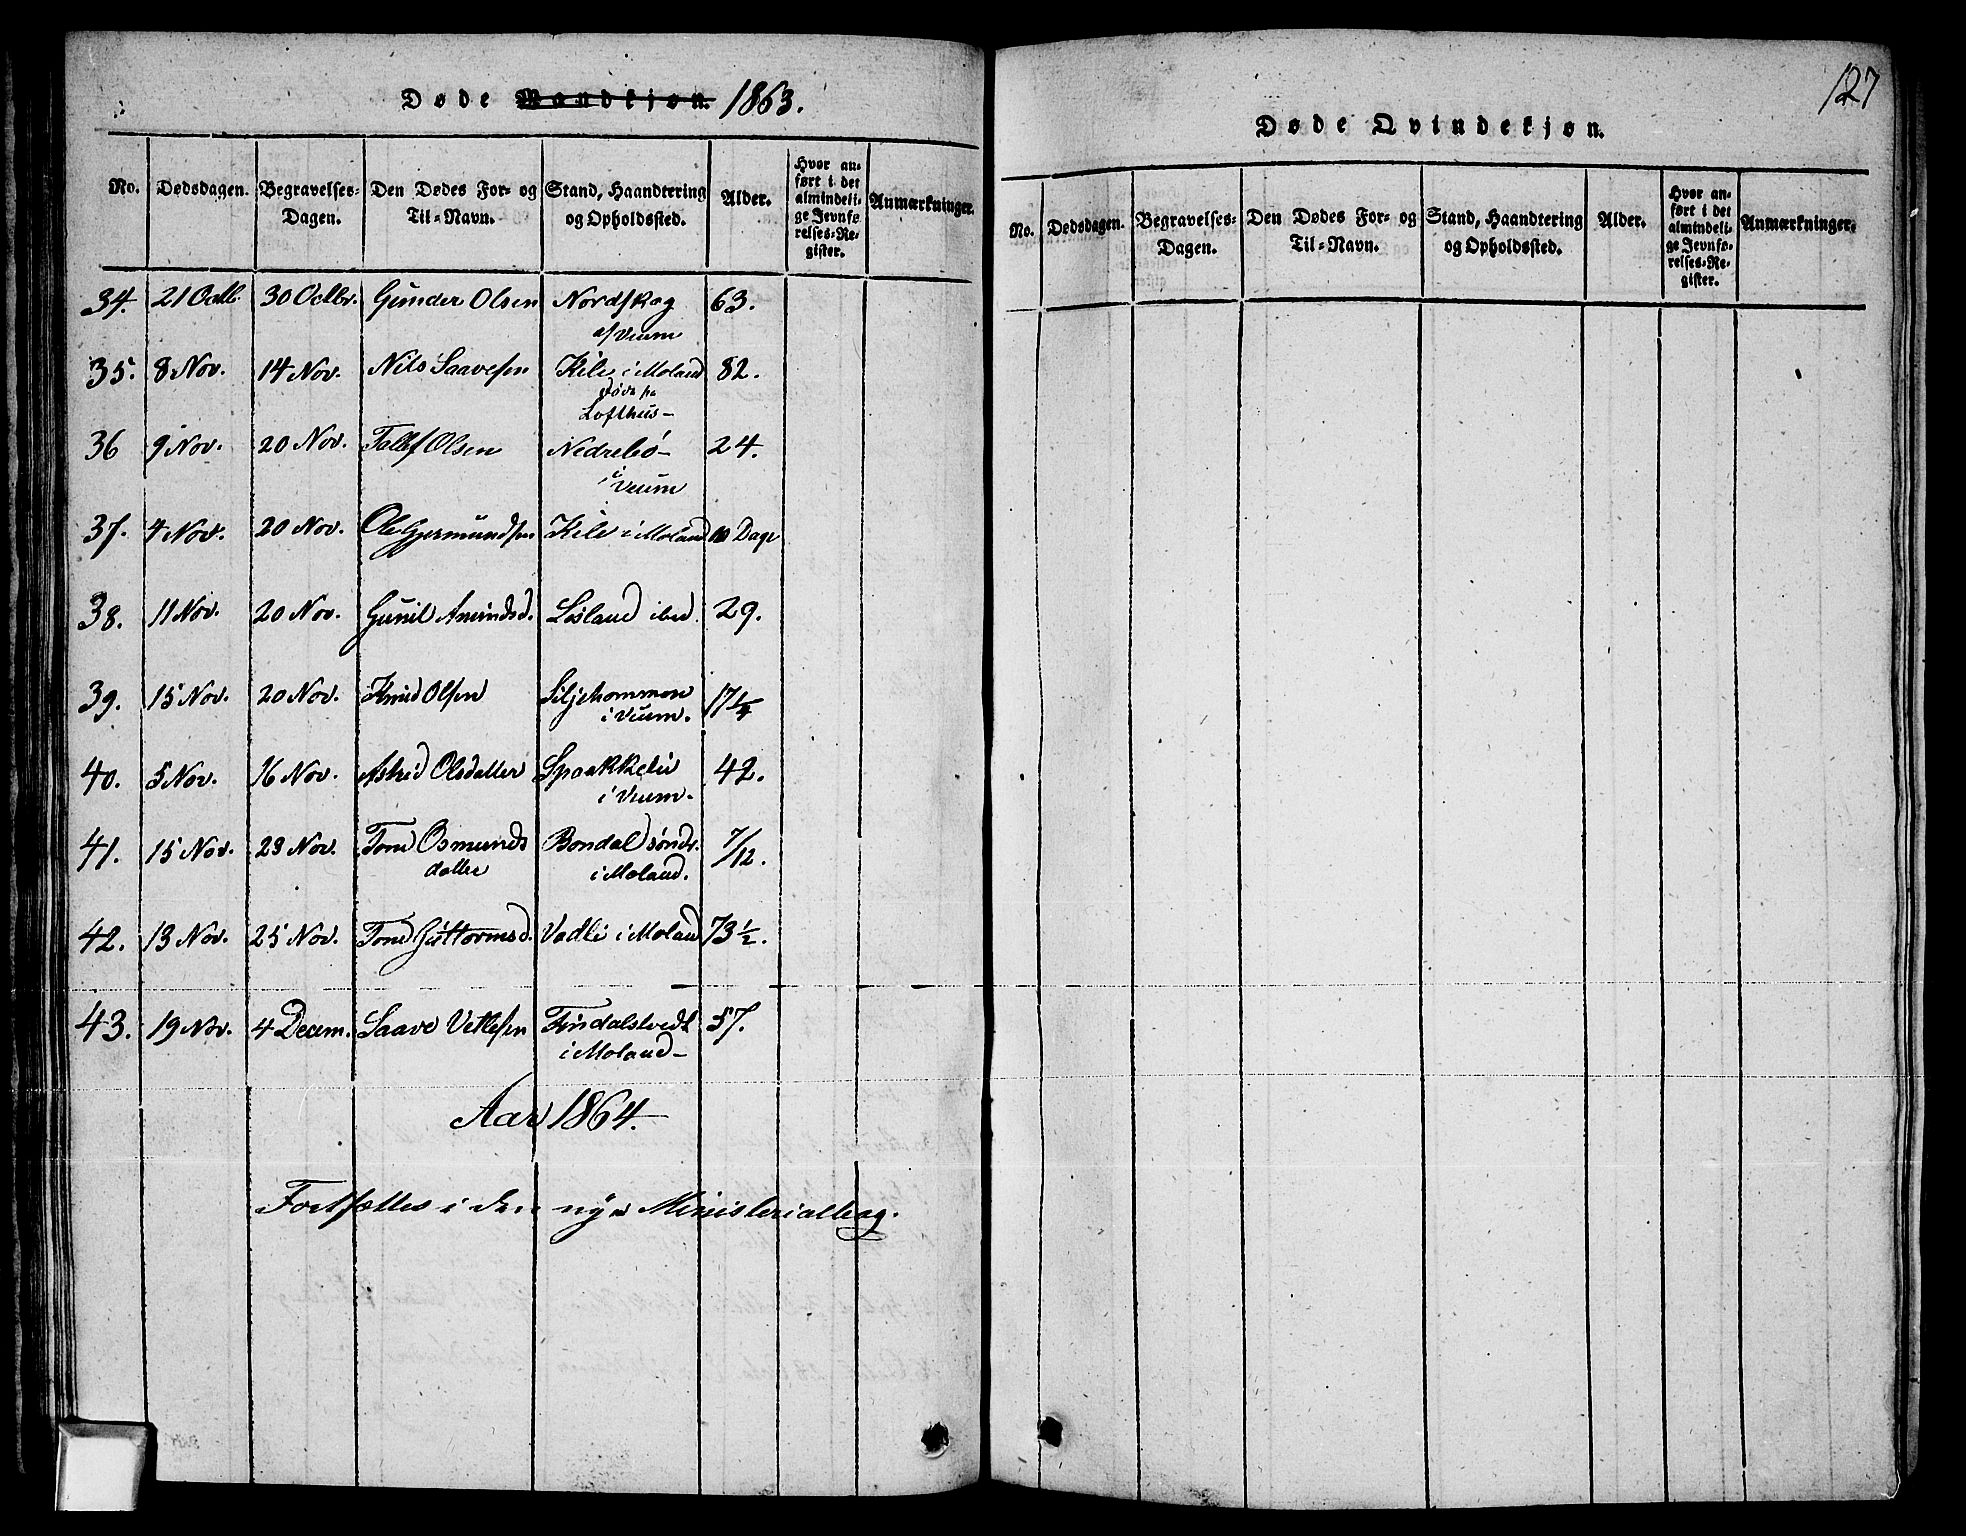 Døde Mandkjøn. 1863.
No. Dødsdagen. Begravelses-Dagen. Den Dødes For- og Til-Navn. Stand, Haandtering og Opholdssted. Alder. Hvor anført i det almindelige Jevnførelses-Register. Anmærkninger.
34. 21 Octb. 30 Octbr. Gunder Olsen Nordskog 63.
af Veum
35. 8 Nov. 14 Nov. Nils Saavesen Kile i Moland 82.
døde paa
Lofthus-
36 9 Nov. 20 Nov. Tallef Olsen Nedrebö- 24.
i Veum
37. 4 Nov. 20 Nov. Ole Gjermundsen Kile i Moland 10 Dage
38. 11 Nov. 20 Nov. Gunil Anundsd. Lösland ibid. 29.
39. 15 Nov. 20 Nov. Knud Olsen Siljehommen 17 1/4
i Veum.
40. 5 Nov. 16 Nov. Astrid Olsdatter Spaakkelie 42.
i Veum.
41. 15 Nov. 23 Nov. Tone Osmunds Bondal söndr. 7/12.
datter i Moland.
42. 13 Nov. 25 Nov. Tone Guttormsd. Vadli i Moland 73 1/2.
43. 19 Nov. 4 Decem. Saave Vetlesen Findalstvedt 57.
i Moland-
Aar 1864.
Fortsættes i den nye Ministerialbog.
127
Døde Qvindekjøn.
No. Dødsdagen. Begravelses-Dagen. Den Dødes For- og Til-Navn. Stand, Haandtering og Opholdssted. Alder. Hvor anført i det almindelige Jevnførelses-Register. Anmærkninger.